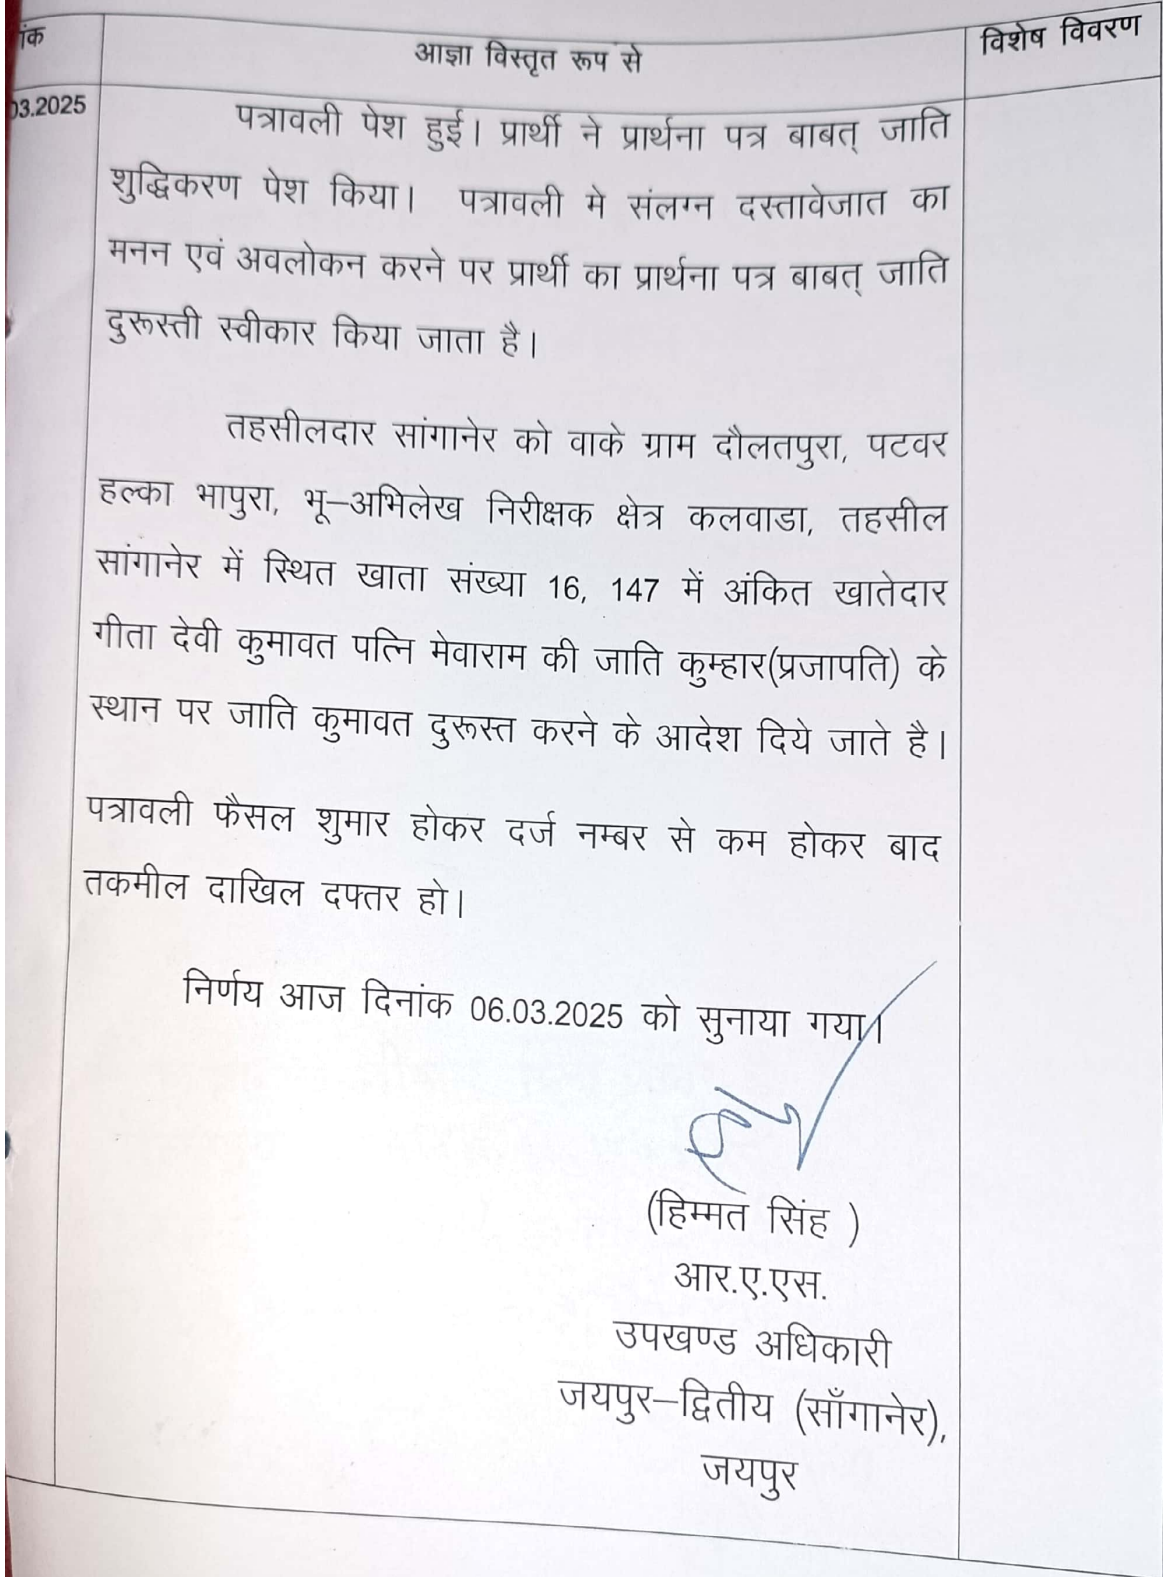 आज्ञा विस्तृत रूप से
विशेष विवरण
03.2025
पत्रावली पेश हुई। प्रार्थी ने प्रार्थना पत्र बाबत् जाति
शुद्धिकरण पेश किया। पत्रावली मे संलग्न दस्तावेजात का
मनन एवं अवलोकन करने पर प्रार्थी का प्रार्थना पत्र बाबत् जाति
दुरूस्ती स्वीकार किया जाता है।
तहसीलदार सांगानेर को वाके ग्राम दौलतपुरा, पटवर
हल्का भापुरा, भू–अभिलेख निरीक्षक क्षेत्र कलवाडा, तहसील
सांगानेर में स्थित खाता संख्या 16, 147 में अंकित खातेदार
गीता देवी कुमावत पत्नि मेवाराम की जाति कुम्हार(प्रजापति) के
स्थान पर जाति कुमावत दुरूस्त करने के आदेश दिये जाते है।
पत्रावली फैसल शुमार होकर दर्ज नम्बर से कम होकर बाद
तकमील दाखिल दफ्तर हो।
निर्णय आज दिनांक 06.03.2025 को सुनाया गया।
(हिम्मत सिंह )
आर.ए.एस.
उपखण्ड अधिकारी
जयपुर–द्वितीय (साँगानेर),
जयपुर